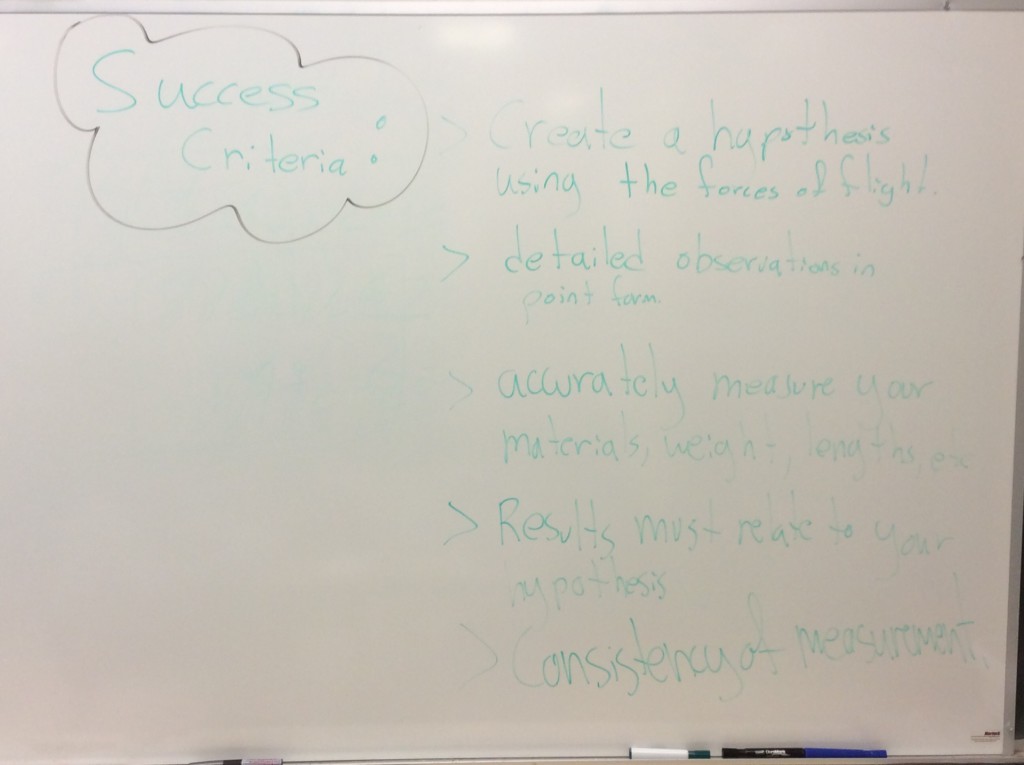 Success
Criteria:
> Create a hapothesis
using the forces of flight.
> detailed observations in
point form
> accurately measure your
materials, weight, lengths, etc
> Results must relate to your
hypothesis
> Consistency of measurement.